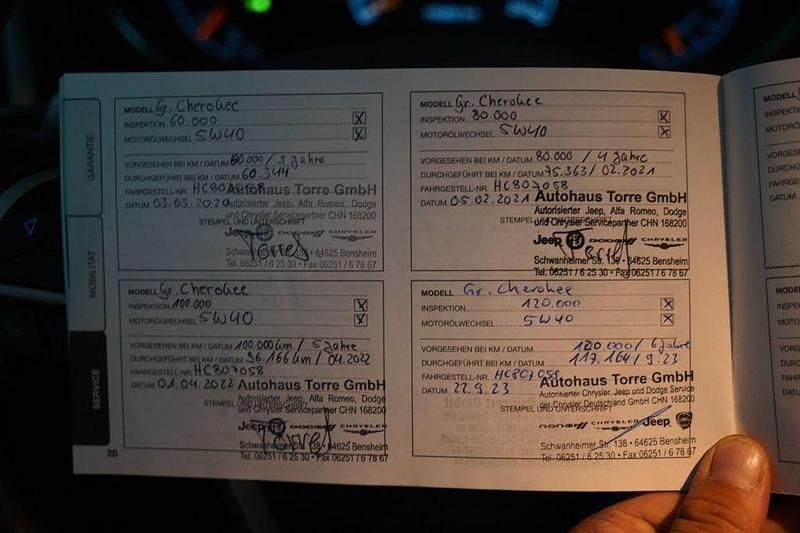 GARANTIE
MOBILITÄT
SERVICE
MODELL Gr. Cherokee
INSPEKTION 60.000 X
MOTORÖLWECHSEL 5W40 X
VORGESEHEN BEI KM / DATUM 60.000 / 3 Jahre
DURCHGEFÜHRT BEI KM / DATUM 60.344
FAHRGESTELL-NR. HC807058
DATUM 03.03.2020
Autohaus Torre GmbH
Autorisierter Jeep, Alfa Romeo, Dodge
und Chrysler Servicepartner CHN 168200
STEMPEL UND UNTERSCHRIFT
Jeep DODGE CHRYSLER
Schwanheimer Str. 138 • 64625 Bensheim
Tel. 06251 / 6 25 30 • Fax 06251 / 6 78 67
MODELL Gr. Cherokee
INSPEKTION 80.000 X
MOTORÖLWECHSEL 5W40 X
VORGESEHEN BEI KM / DATUM 80.000 / 4 Jahre
DURCHGEFÜHRT BEI KM / DATUM 75.363 / 02.2021
FAHRGESTELL-NR. HC807058
DATUM 05.02.2021
Autohaus Torre GmbH
Autorisierter Jeep, Alfa Romeo, Dodge
und Chrysler Servicepartner CHN 168200
STEMPEL UND UNTERSCHRIFT
Jeep DODGE CHRYSLER
Schwanheimer Str. 138 • 64625 Bensheim
Tel. 06251 / 6 25 30 • Fax 06251 / 6 78 67
MODELL Gr. Cherokee
INSPEKTION 100.000 X
MOTORÖLWECHSEL 5W40 X
VORGESEHEN BEI KM / DATUM 100.000 km / 5 Jahre
DURCHGEFÜHRT BEI KM / DATUM 96.166 km / 04.2022
FAHRGESTELL-NR. HC807058
DATUM 01.04.2022
Autohaus Torre GmbH
Autorisierter Jeep, Alfa Romeo, Dodge
und Chrysler Servicepartner CHN 168200
STEMPEL UND UNTERSCHRIFT
Jeep DODGE CHRYSLER
Schwanheimer Str. 138 • 64625 Bensheim
Tel. 06251 / 6 25 30 • Fax 06251 / 6 78 67
28
MODELL Gr. Cherokee
INSPEKTION 120.000 X
MOTORÖLWECHSEL 5W40 X
VORGESEHEN BEI KM / DATUM 120.000 / 6 Jahre
DURCHGEFÜHRT BEI KM / DATUM 117.164 / 9.23
FAHRGESTELL-NR. HC807058
DATUM 22.9.23
Autohaus Torre GmbH
Autorisierter Chrysler, Jeep und Dodge Service
der Chrysler Deutschland GmbH CHN 168200
STEMPEL UND UNTERSCHRIFT
DODGE CHRYSLER Jeep
Schwanheimer Str. 138 • 64625 Bensheim
Tel. 06251 / 6 25 30 • Fax 06251 / 6 78 67
MODELL
INSPEKTION
MOTORÖL
VORGES
DURCHG
FAHRGE
DATUM
MODELL
INSPEKT
MOTORÖ
VORGE
DURCH
FAHRG
DATUM